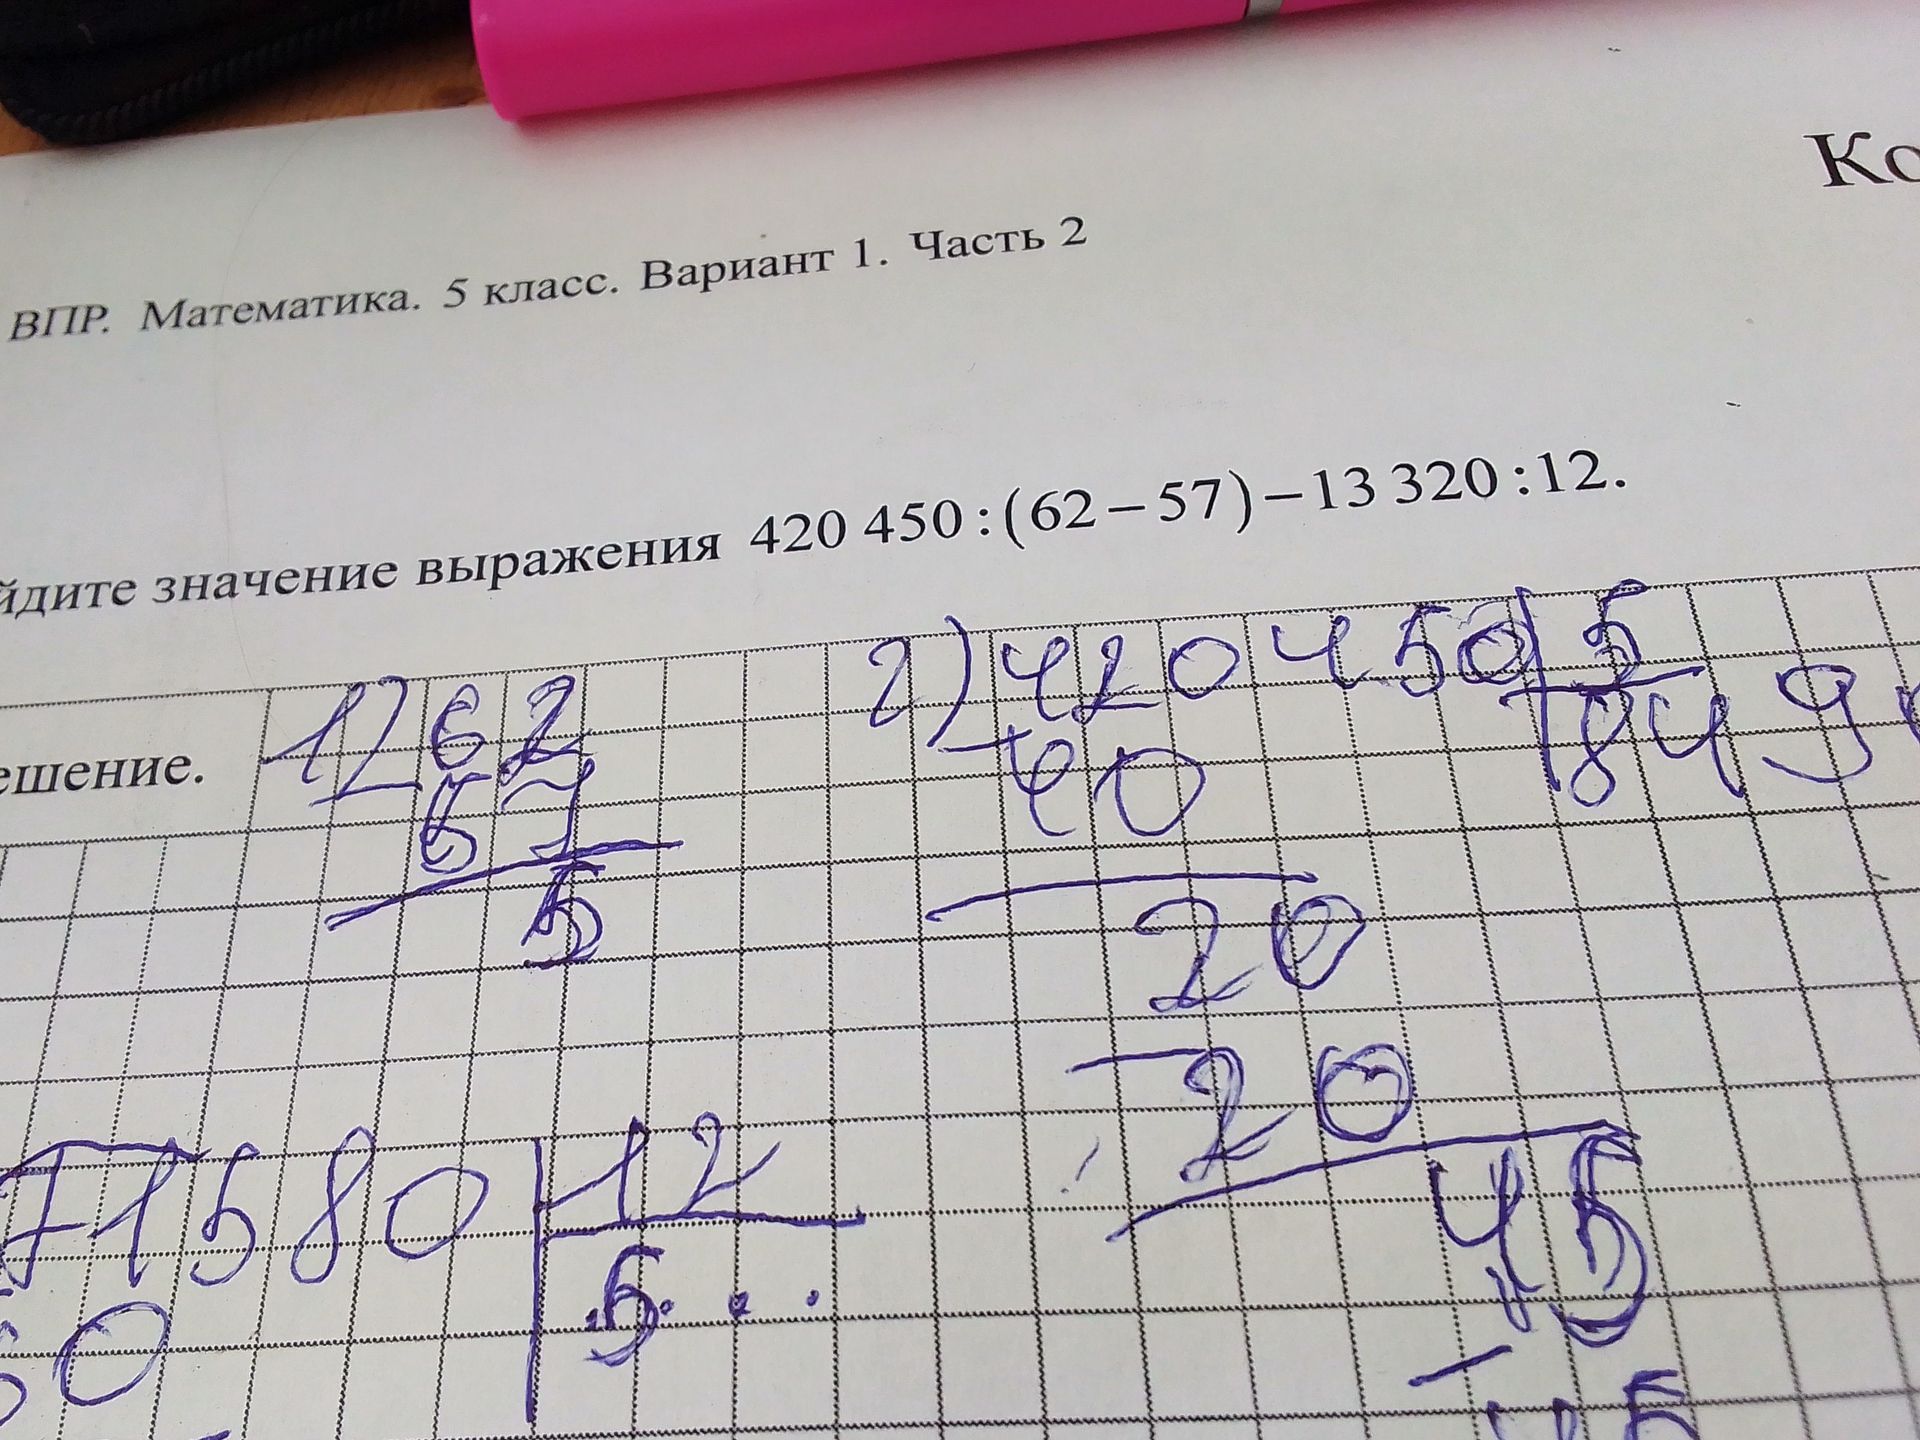 Ко
ВПР. Математика. 5 класс. Вариант 1. Часть 2
йдите значение выражения 420 450 : (62 − 57) − 13 320 : 12.
ешение.
1) 62
57
5
2) 420450 5
40 849
20
20
45
45
71580 12
60 5...